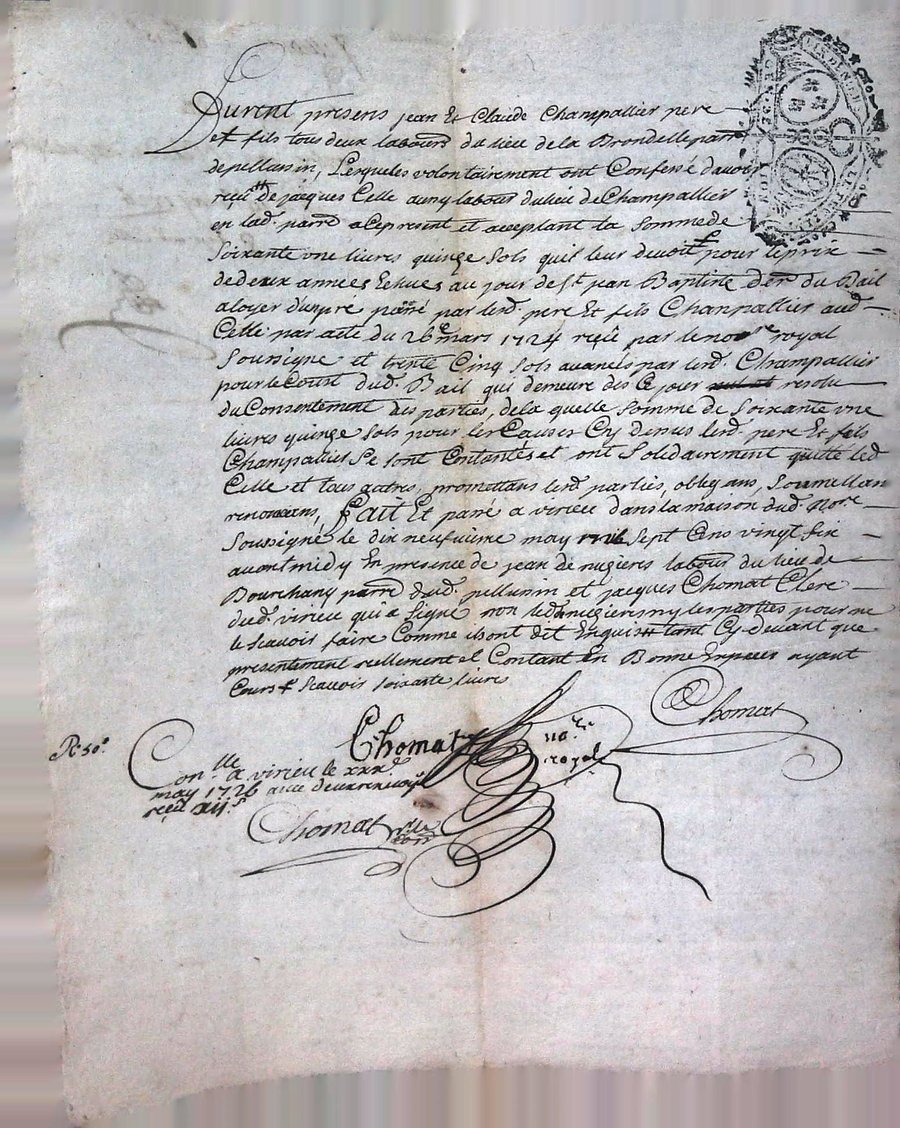 Furent presens jean Et Claude Champallier pere
et fils tous deux labours du lieu de la Brondelle parr
de pellussin, Lesqueles volontairement ont Confessé d'avoir
reçu de jacques Celle aussy labour du lieu de Champallier
en lad. parre a Ce present et acceptant la Somme de
Soixante une livres quinze Sols qu'il leur devoit pour le prix
de deux années Echues au jour de St jean Baptiste der du Bail
a loyer d'un pré passé par lesd. pere Et fils Champallier aud.
Celle par acte du 26e mars 1724 reçu par le nore royal
Soussigné et trente Cinq Sols avancés par lesd. Champallier
pour le Coust dud. Bail qui demeure des Ce jour resolu
du Consentement des parties, de la quelle Somme de Soixante une
livres quinze Sols pour les Causes Cy dessus lesd. pere Et fils
Champallier Se Sont Contantés et ont Solidairement quitté led
Celle et tous autres, promettans lesd. parties, obligeans, Soumettans
renonceans, Fait Et passé a virieu dans la maison dud. Nore
Soussigné le dix neufvieme may Sept Cens vingt Six
avant midy En presence de jean de nugieres labour du lieu de
Bourchany parre dud. pellussin et jacques Chomat Clerc
dud. virieu qui a Signé non led. denugieres ny les parties pour ne
le Scavoir faire Comme ils ont dit Enquis Cy-devant que
presentement reellement et Contant En Bonne Especes ayant
Cours + Scavoir Soixante livres
Chomat
Chomat nore royal
Rt 50s
Conlle a virieu le xxx
may 1726 avec deux renvoys
reçu xijs
Chomat